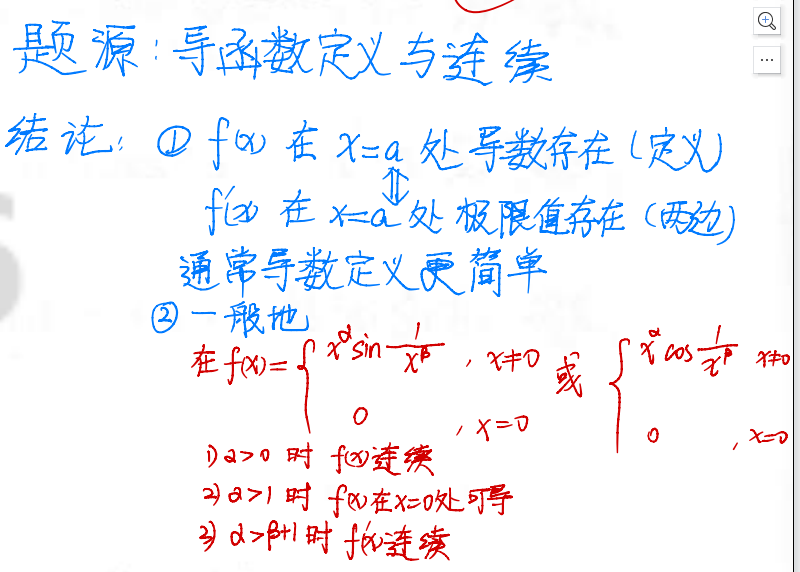 题源：导函数定义与连续
结论：① f(x) 在 x=a 处导数存在（定义）
⇕
f'(x) 在 x=a 处 极限值存在（两边）
通常导数定义更简单
② 一般地
在 f(x)= { x^α sin 1/x^β , x≠0 或 { x^α cos 1/x^β x≠0
0 , x=0 0 , x=0
1) α>0 时 f(x)连续
2) α>1 时 f(x)在x=0处可导
3) α>β+1时 f'(x)连续